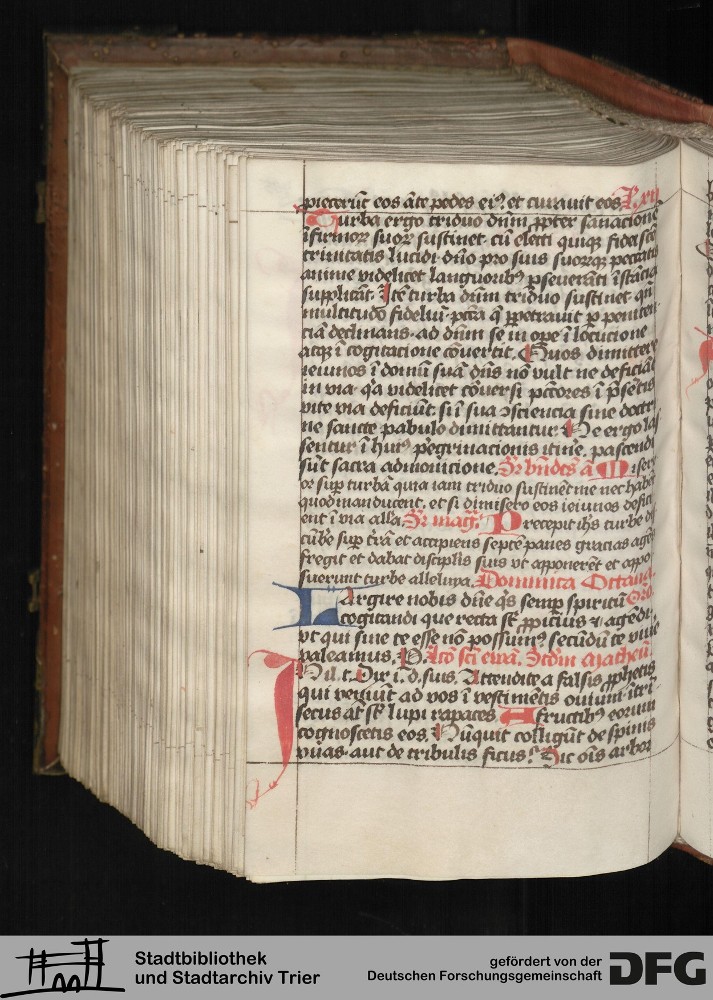 piecerūt eos āte pedes eiꝰ. et curavit eos
Turba ergo triduo dnm ꝓpter sanacione
īfirmoꝝ suoꝝ sustinet. cū electi quiqꝫ fidei scē
trinitatis lucidi. dno pro suis suorqꝫ peccatis
anime videlicet languoribꝰ ꝑseverāti īstācia
supplicāt. Itē turba dnm triduo sustinet. qn̄
multitudo fideliū. pcc̄a q̄ ꝑpetravit ꝑ peniten
ciā declinans. ad dnm se in oꝑe ī locucione
atqꝫ ī cogitacione cōvertit. Quos dimittere
ieiunos ī domū suā dns nō vult ne deficiāt
in via. qꝛ videlicet cōversi pccōres ī p̄sētis
vite via deficiūt. si ī sua ꝯsciencia sine doctri
ne sancte pabulo dimittantur. Ne ergo las
sentur ī huiꝰ peregrinacionis itine. pascendi
sūt sacra admonicione. Sr bn̄dcs ā Miser
or suꝑ turbā quia iam triduo sustinēt me nec habēt
quod manducent. et si dimisero eos ieiunos defici
ent ī via alla. Sr mag. Precepit ihs turbe dis
cūbe suꝑ trā et accipiens septē panes gracias agēs
fregit et dabat disciplis suis vt apponerēt et appo
suerunt turbe alleluya. Dominica Octava
Largire nobis dne qs semꝑ spiritū Oro.
cogitandi que recta st ꝓpicius ⁊ agēdi.
vt qui sine te esse nō possumꝰ secūdū te vive
valeamus. P. Lcō scī ewā. Scdm Matheū.
In il. t. Dix i. d. suis. Attendite a falsis ꝓphetis
qui veniūt ad vos ī vestimētis ovium. ītrī
secus āt st lupi rapaces. A fructibꝰ eorum
cognoscetis eos. Nūquit colligūt de spinis
vuas. aut de tribulis ficus? Sic ois arbor
Stadtbibliothek
und Stadtarchiv Trier
gefördert von der
Deutschen Forschungsgemeinschaft
DFG